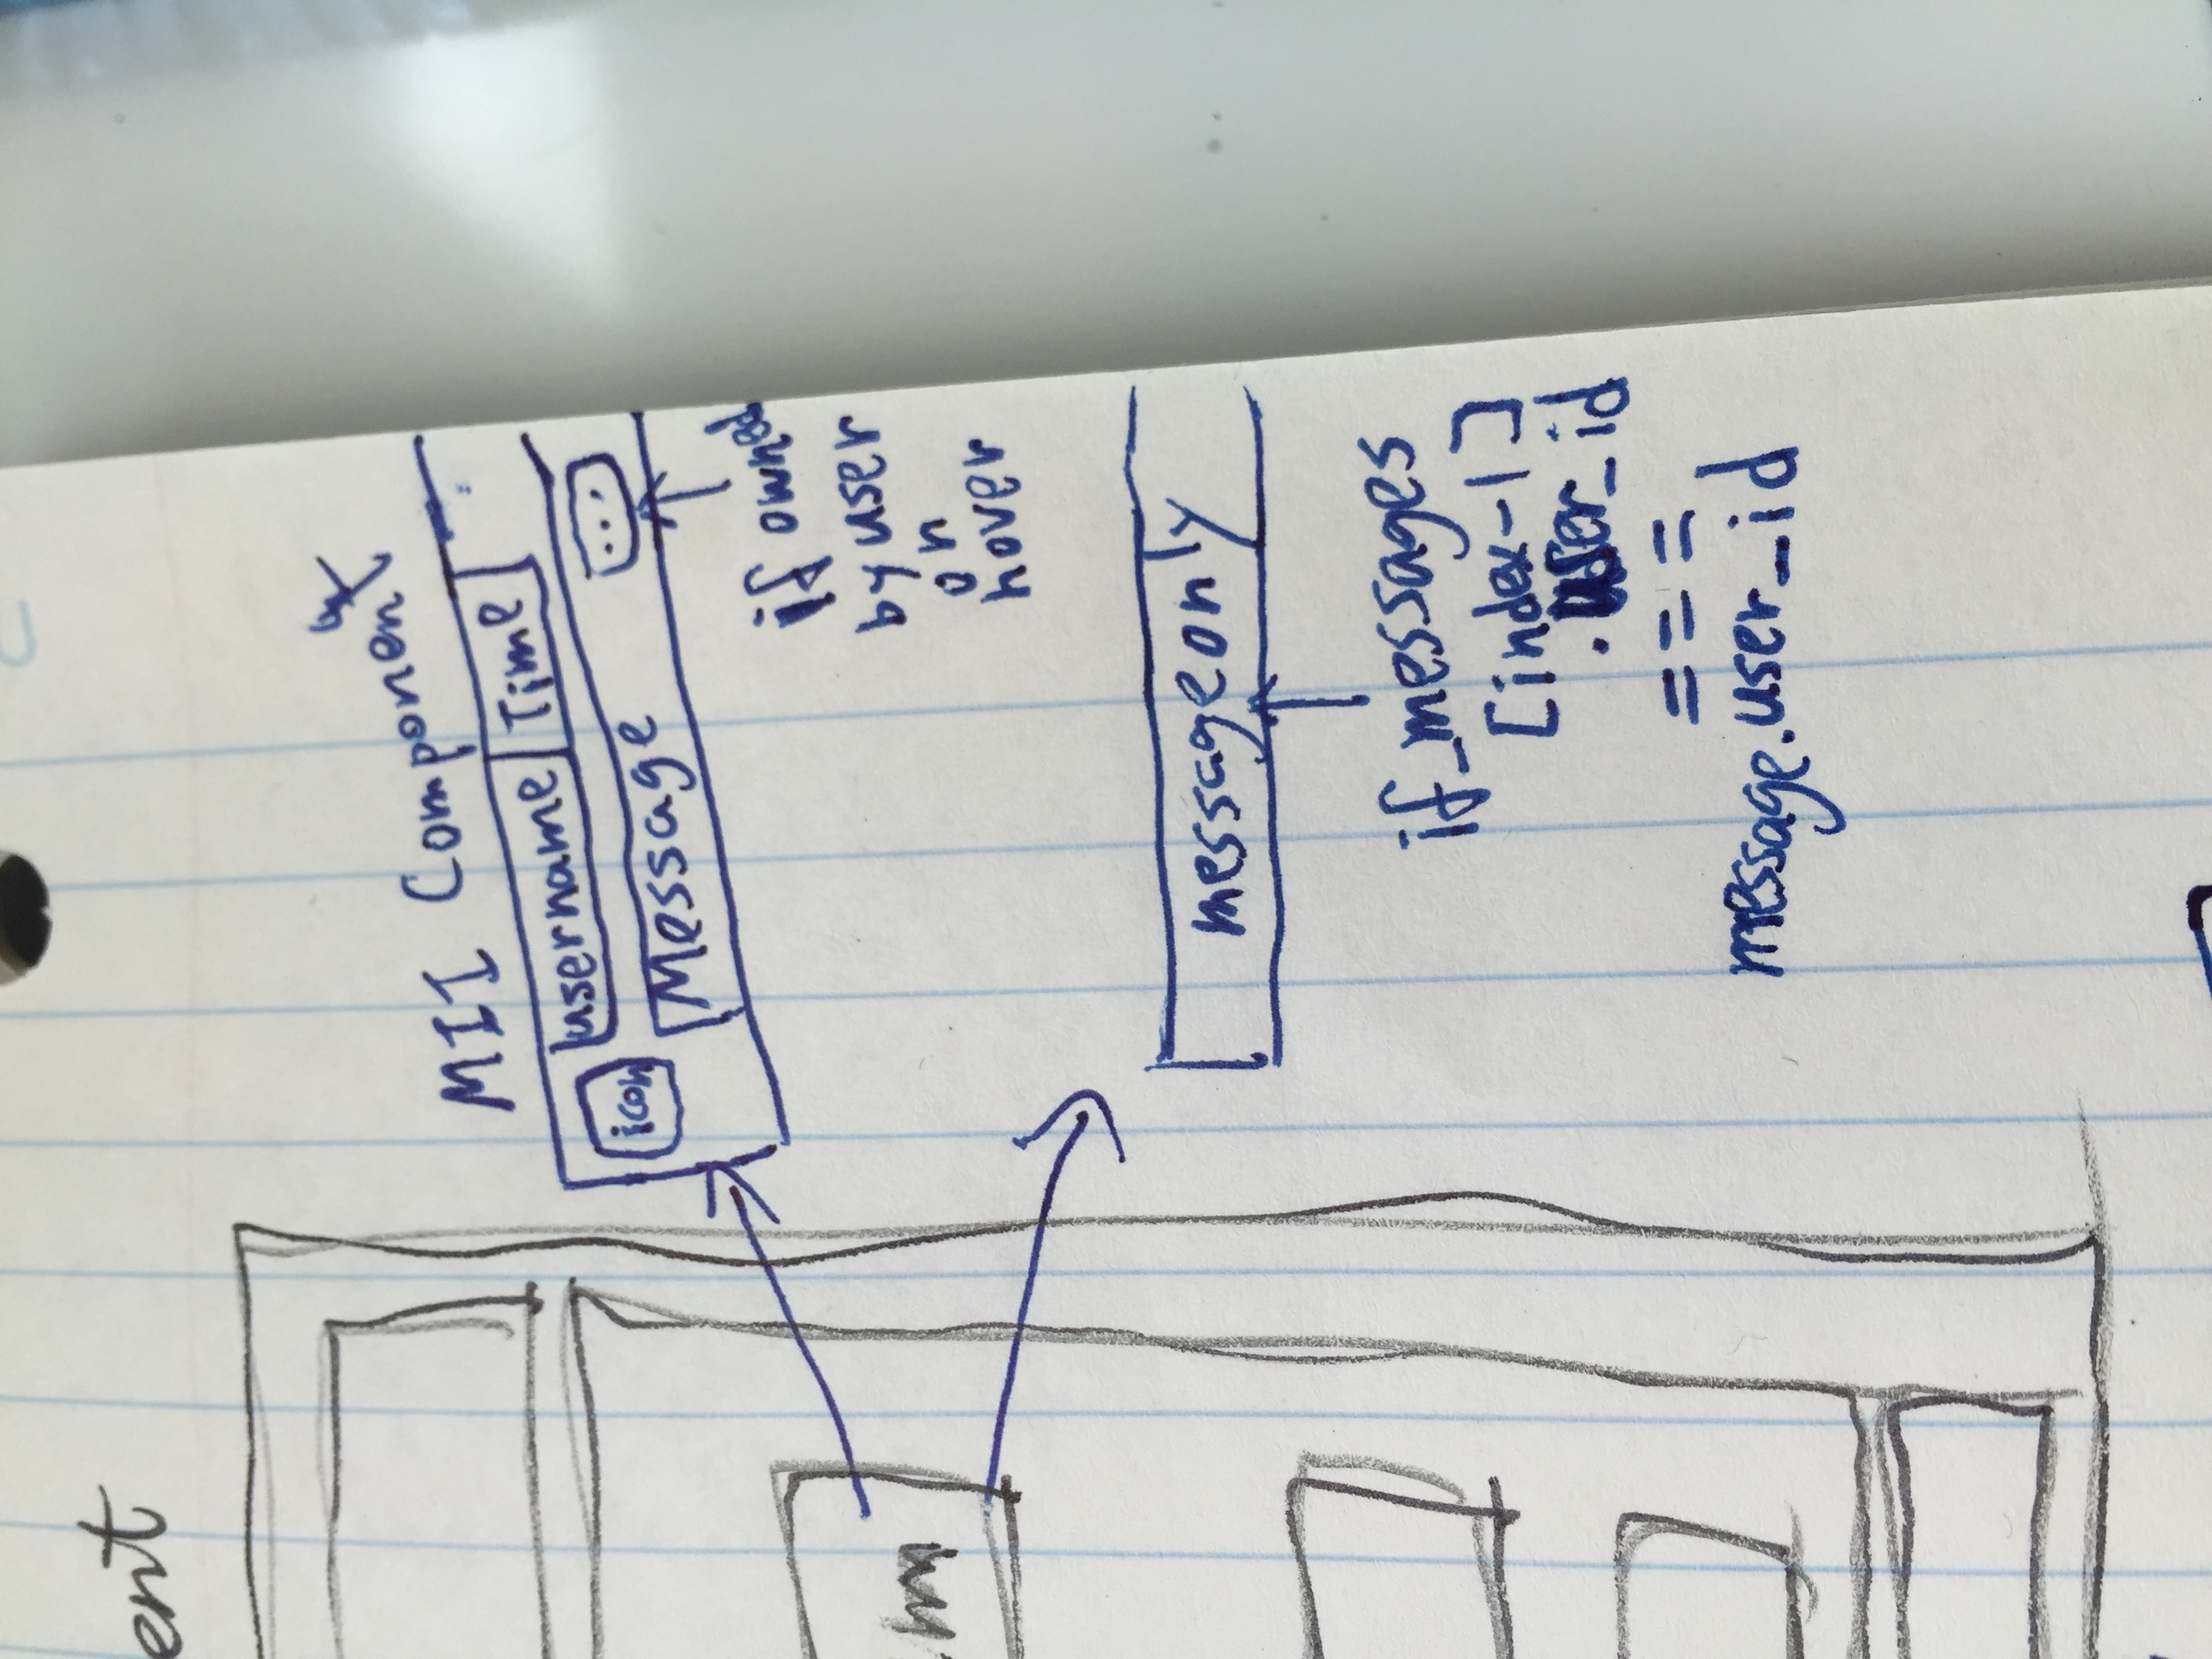 ent
MII Component
username Time
icon
Message ...
if owned
by user
on
hover
message only
if_messages
[index-1]
.user_id
===
message.user_id